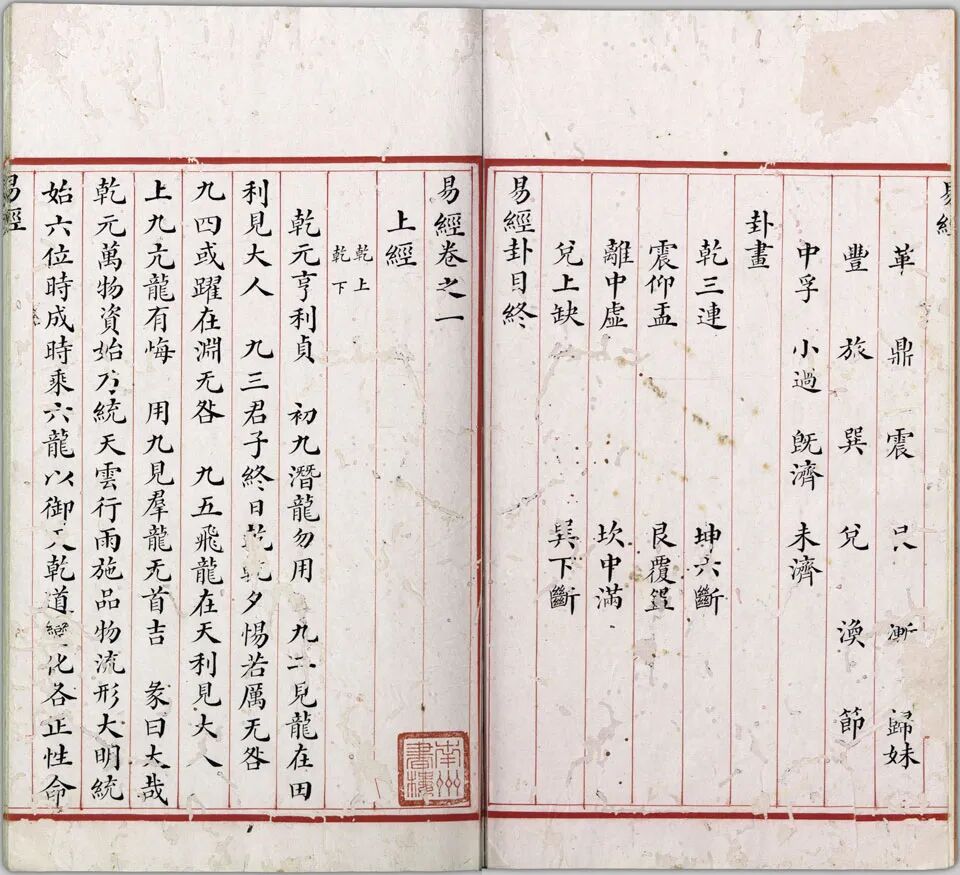 易經
革 鼎 震 艮 漸 歸妹
豐 旅 巽 兌 渙 節
中孚 小過 既濟 未濟
卦畫
乾三連 坤六斷
震仰盂 艮覆盌
離中虛 坎中滿
兌上缺 巽下斷
易經卦目終
易經卷之一
上經
乾上
乾下
乾元亨利貞 初九潛龍勿用 九二見龍在田
利見大人 九三君子終日乾乾夕惕若厲无咎
九四或躍在淵无咎 九五飛龍在天利見大人
上九亢龍有悔 用九見羣龍无首吉 彖曰大哉
乾元萬物資始乃統天雲行雨施品物流形大明終
始六位時成時乘六龍以御天乾道變化各正性命
易經
南州書樓